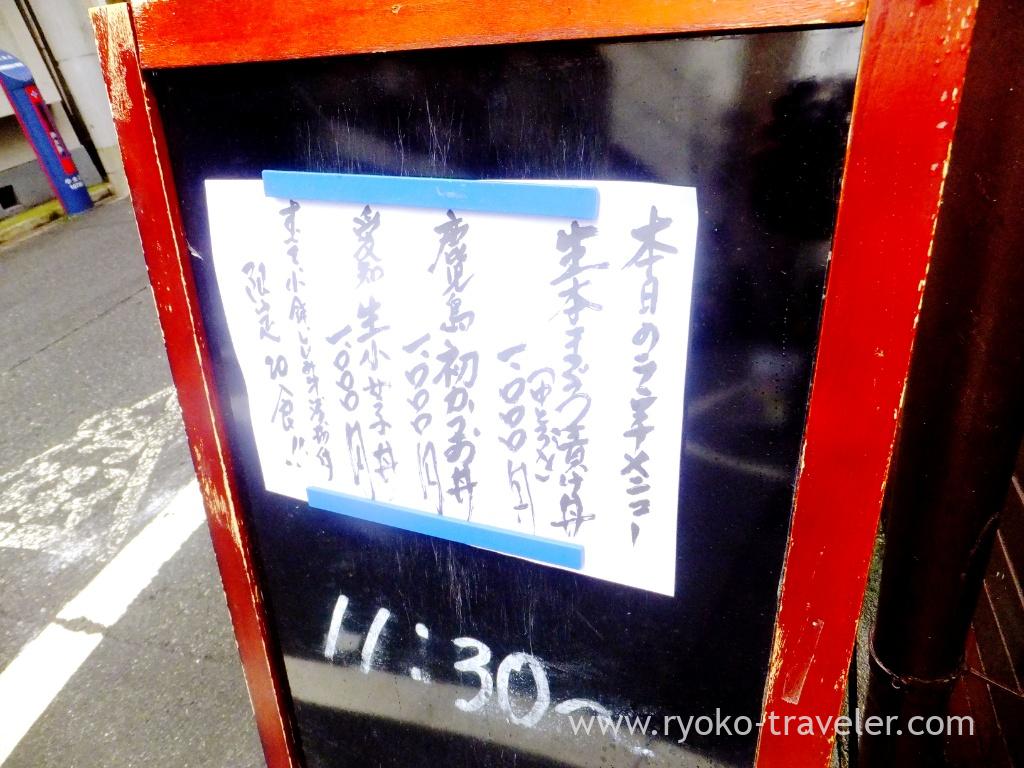 本日のランチメニュー
生本まぐろ漬け丼
(中とろ入)
一,〇〇〇円
鹿児島 初かつお丼
一,〇〇〇円
愛知 生小女子丼
一,〇〇〇円
すべて、小鉢、しじみ汁、浅漬付
限定20食!!
11:30～
www.ryoko-traveler.com